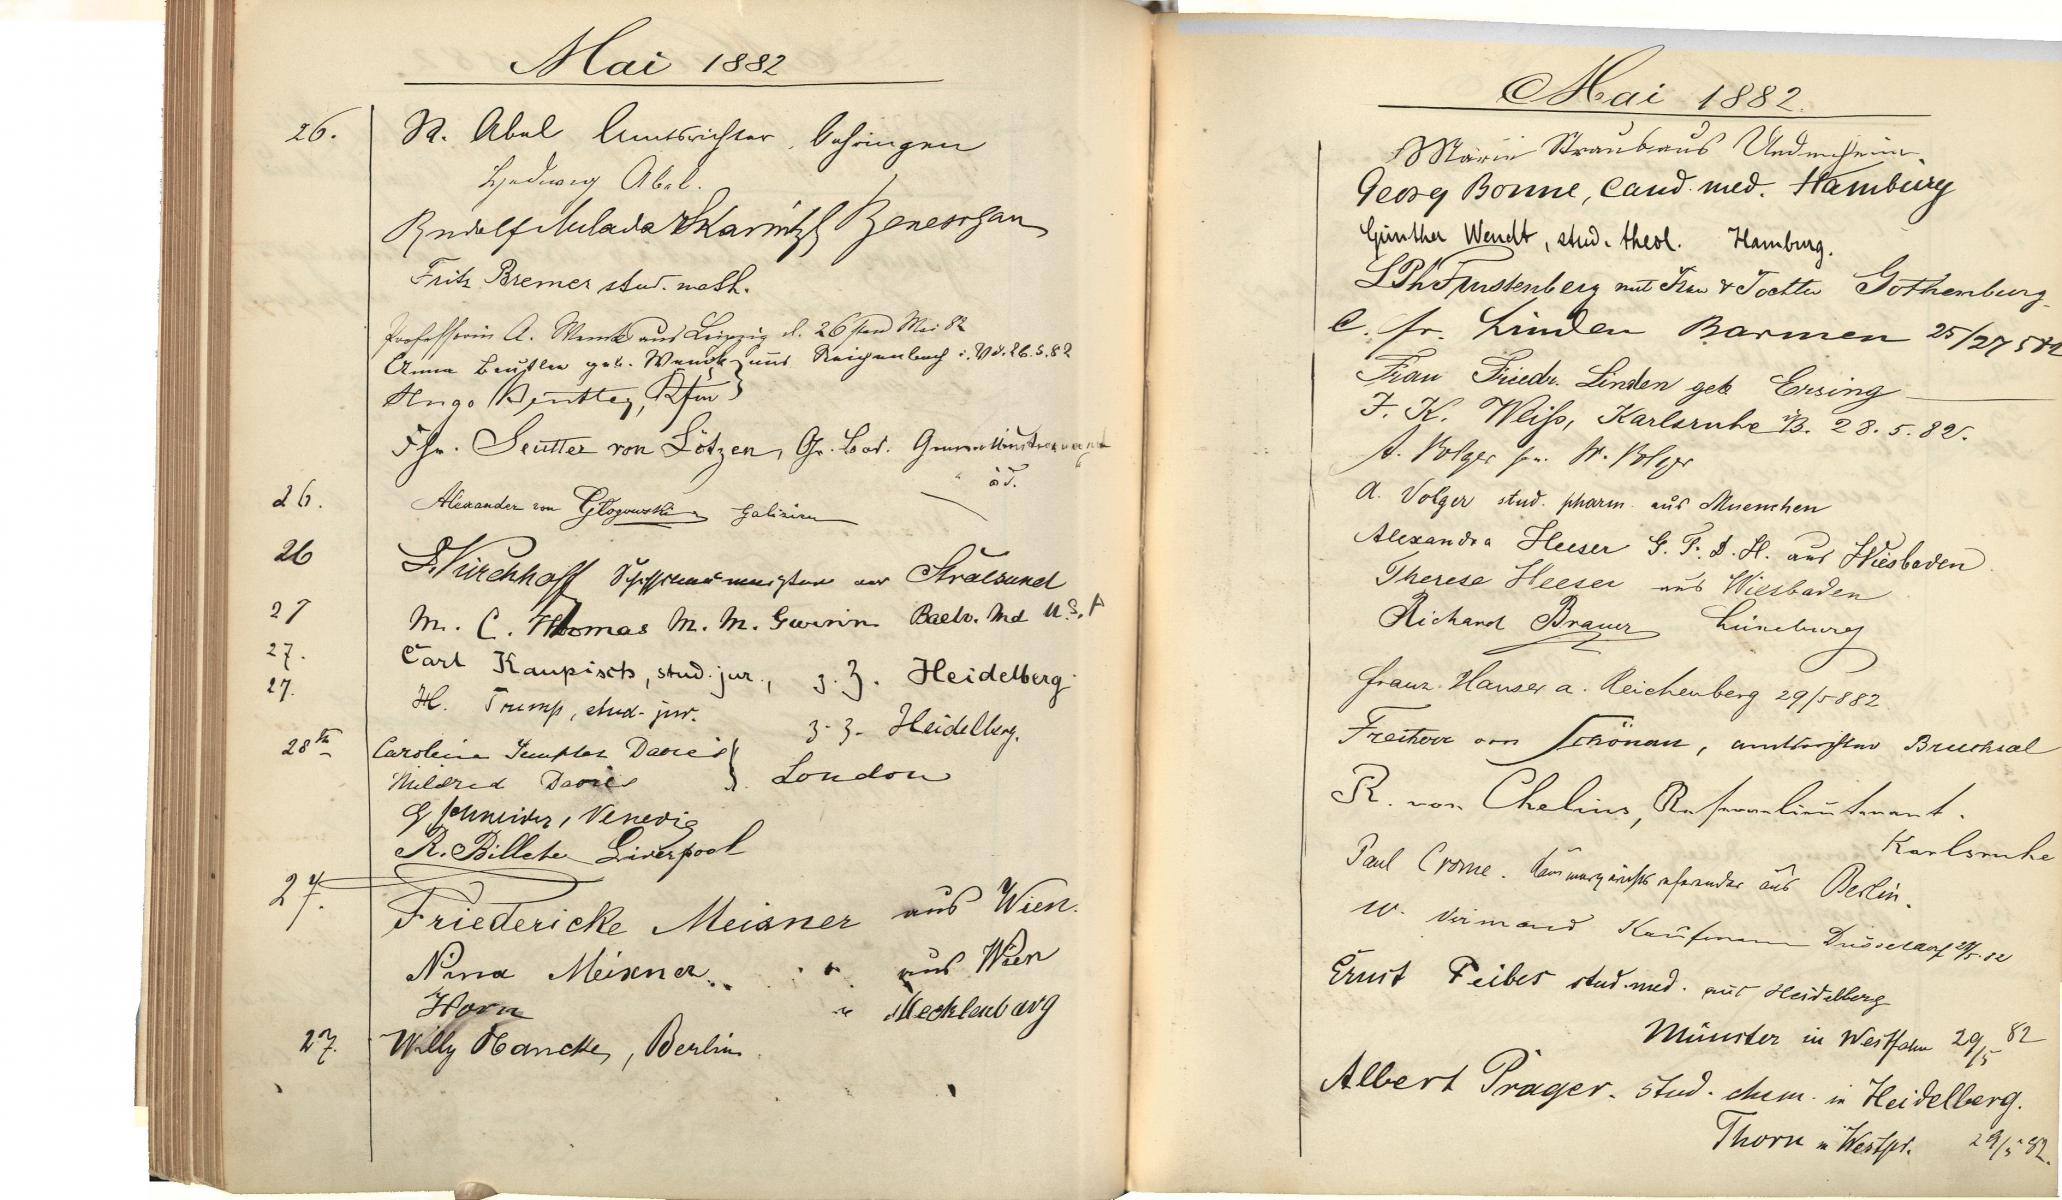 Mai 1882
26. A. Abel Amtsrichter, Gehringen
Hedwig Abel.
Rudolf Milada Benesch
Fritz Bremer stud. math.
Professorin A. Wenck aus Leipzig d. 26ten Mai 82
Anna Beutler geb. Wenck aus Reichenbach i. V. d. 26.5.82
Hugo Beutler, Kfm
Fhr. Seutter von Lötzen, Gr. bad.
a. D.
26. Alexander von Głogowski Galizien
26 Kirchhoff aus Stralsund
27 M. C. Thomas M. M. Gwinn Balto. Md U.S.A
27. Carl Kaupisch, stud. jur., z. Z. Heidelberg.
27. H. Trump, stud. jur. z. Z. Heidelberg.
28th Caroline Templar Davies
Mildred Davies } London
G Schneider, Venedig
R. Billete Liverpool
27. Friedericke Meixner aus Wien.
Nina Meixner aus Wien
Horn " Mecklenburg
27. Willy Hancke, Berlin
Mai 1882.
Marie Straub aus Undenheim.
Georg Bonne, cand. med. Hamburg
Günther Wendt, stud. theol. Hamburg.
L Ph Fürstenberg mit Frau & Tochter Gothenburg
C. fr. Linden Barmen 25/27 5 82
Frau Friedr. Linden geb Ersing
F. K. Weiß, Karlsruhe i/B. 28.5.82.
A. Volger W. Volger
A. Volger stud. pharm. aus Muenchen
Alexandra Heeser G. F. D. H. aus Wiesbaden
Therese Heeser aus Wiesbaden
Richard Brauer Lüneburg
Franz Hanser a. Reichenberg 29/5 882
Freiherr von Schönau, Amtsrichter Bruchsal
R. von Chelius, Reservelieutenant.
Karlsruhe
Paul Crome. Kammergerichtsreferendar aus Berlin.
W. Virmond Kaufmann Düsseldorf 29/5.82
Ernst Feibes stud. med. aus Heidelberg
Münster in Westfalen 29/5 82
Albert Prager. stud. chem. in Heidelberg.
Thorn in Westpr. 29/5 82.